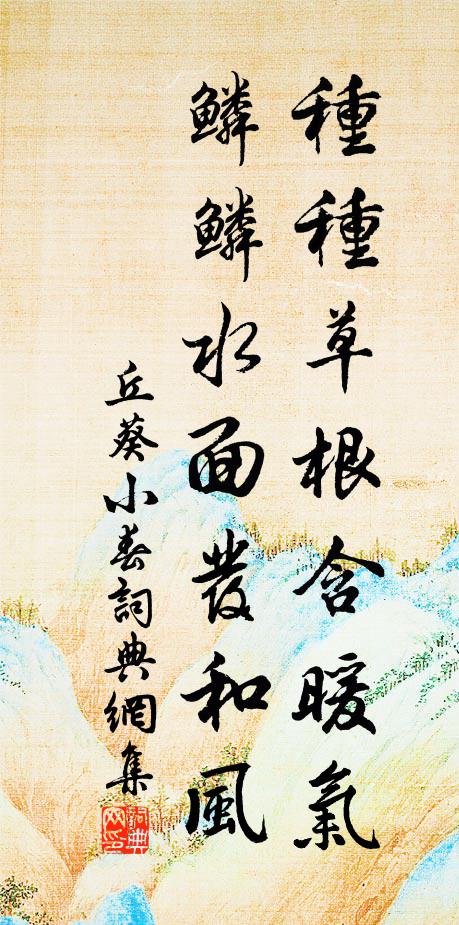 種種草根含暖氣
鱗鱗水面發和風
丘葵小春詞典網集
詞典
网印